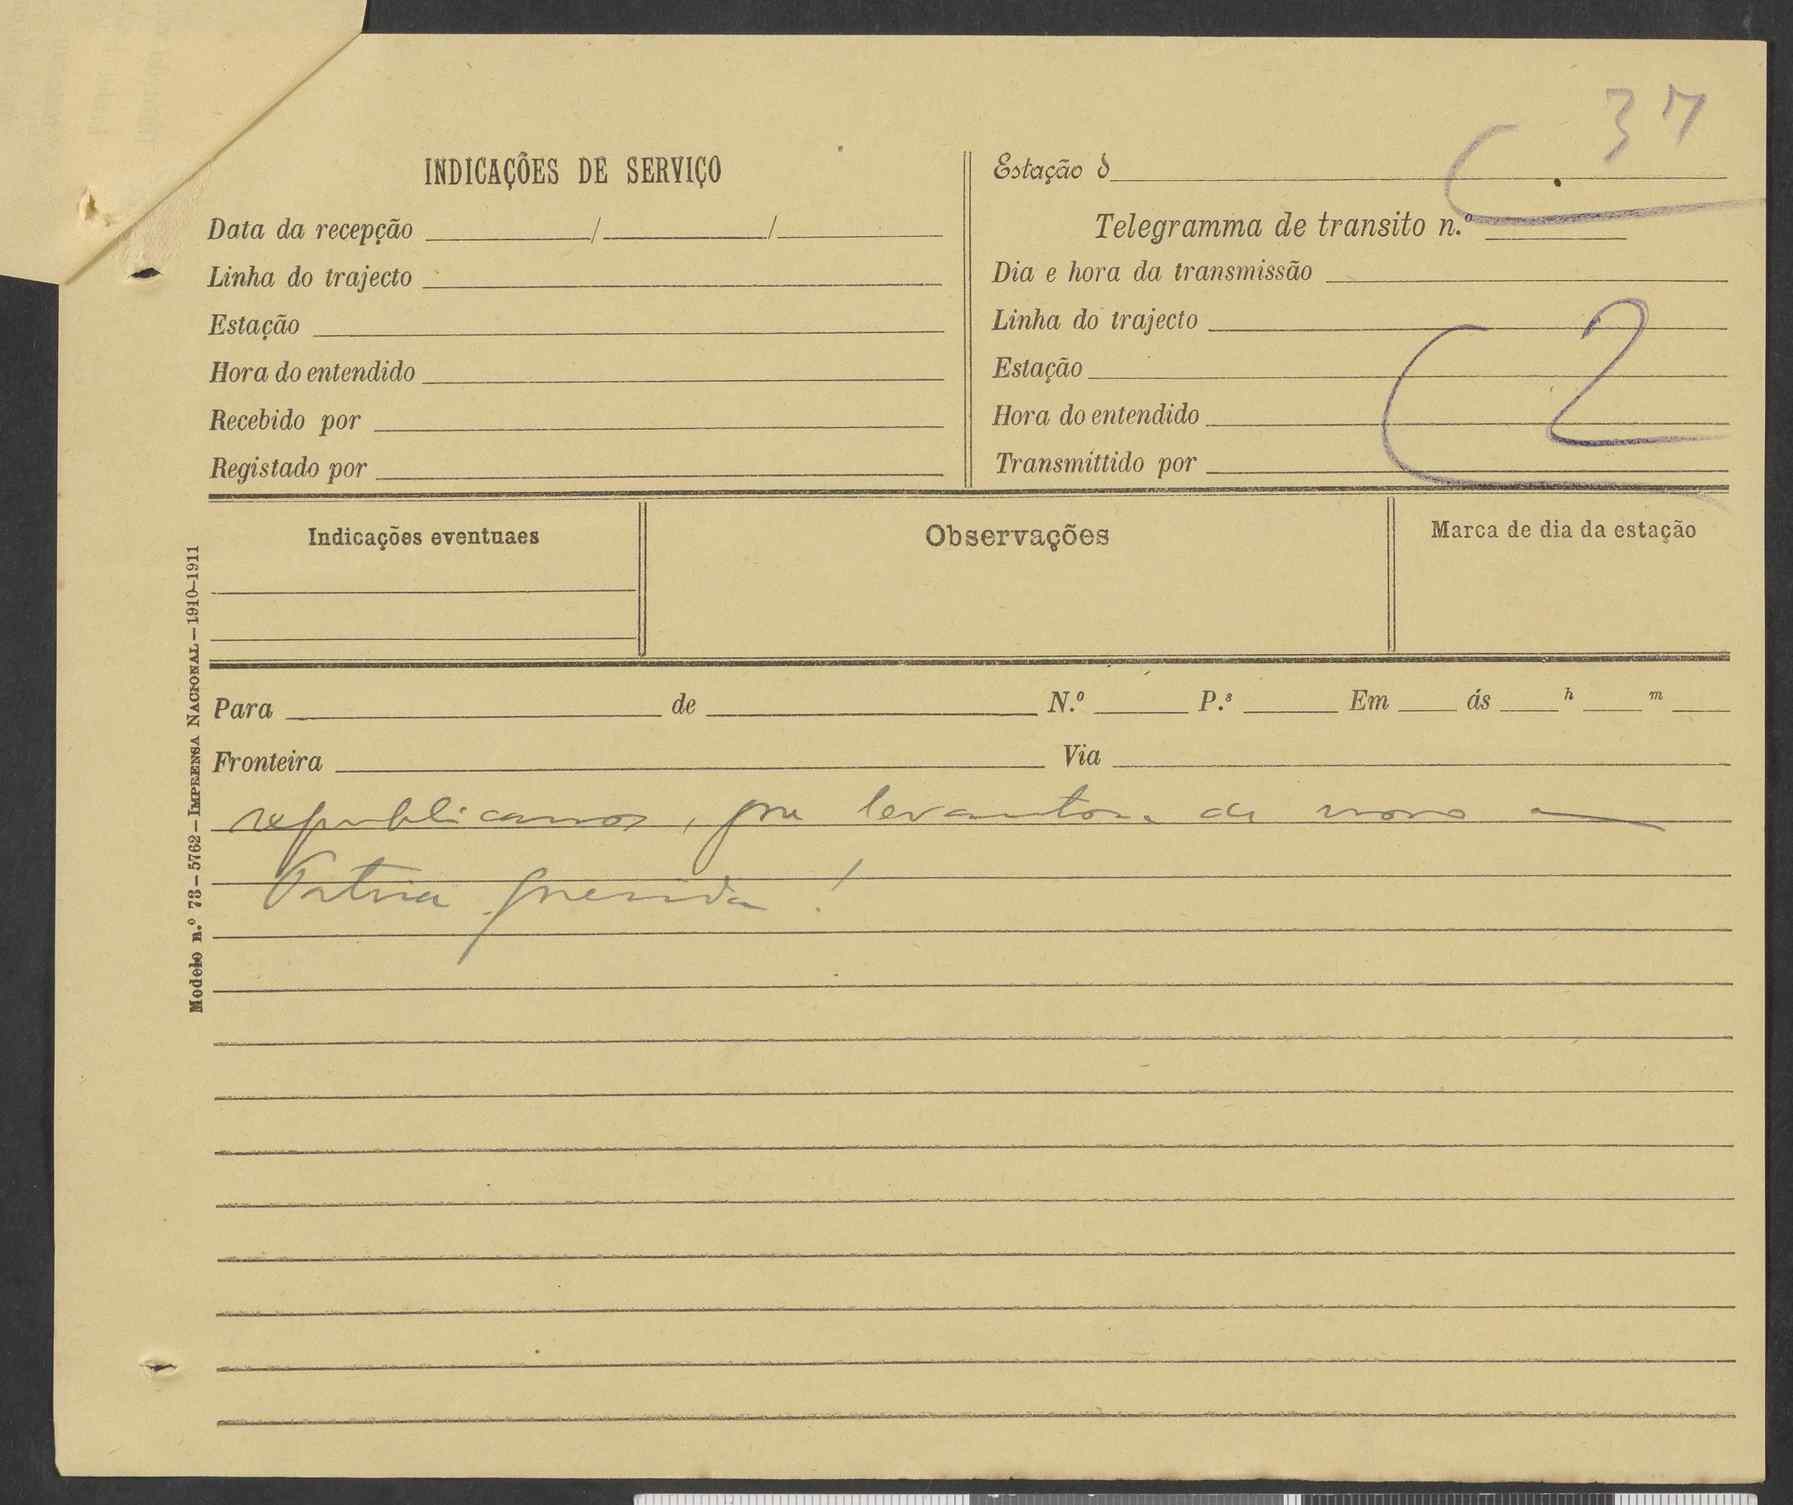 37
INDICAÇÕES DE SERVIÇO
Data da recepção / /
Linha do trajecto
Estação
Hora do entendido
Recebido por
Registado por
Estação d
Telegramma de transito n.º
Dia e hora da transmissão
Linha do trajecto
Estação
Hora do entendido
Transmittido por
2
Indicações eventuaes
Observações
Marca de dia da estação
Para de N.º P.s Em ás h m
Fronteira Via
republicanos, que levantou de novo a
Patria querida!
Modelo n.º 73 – 5762 – IMPRENSA NACIONAL – 1910-1911